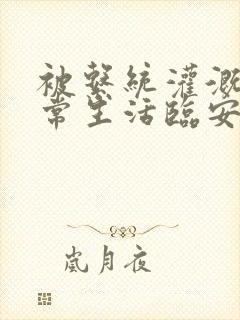 被繫統灌溉
常生活臨安
嵐月夜